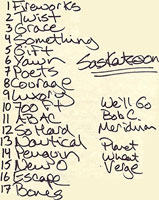 1 Fireworks
2 Twist
3 Grace
4 Something
5 Gift
6 Yawn
7 Poets
8 Courage
9 Luxury
10 700 Ft
11 ABAC
12 So Hard
13 Nautical
14 Penguin
15 New O
16 Escape
17 Bones
Saskatoon
We'll Go
Bob C
Meridian
Planet
What
Verge